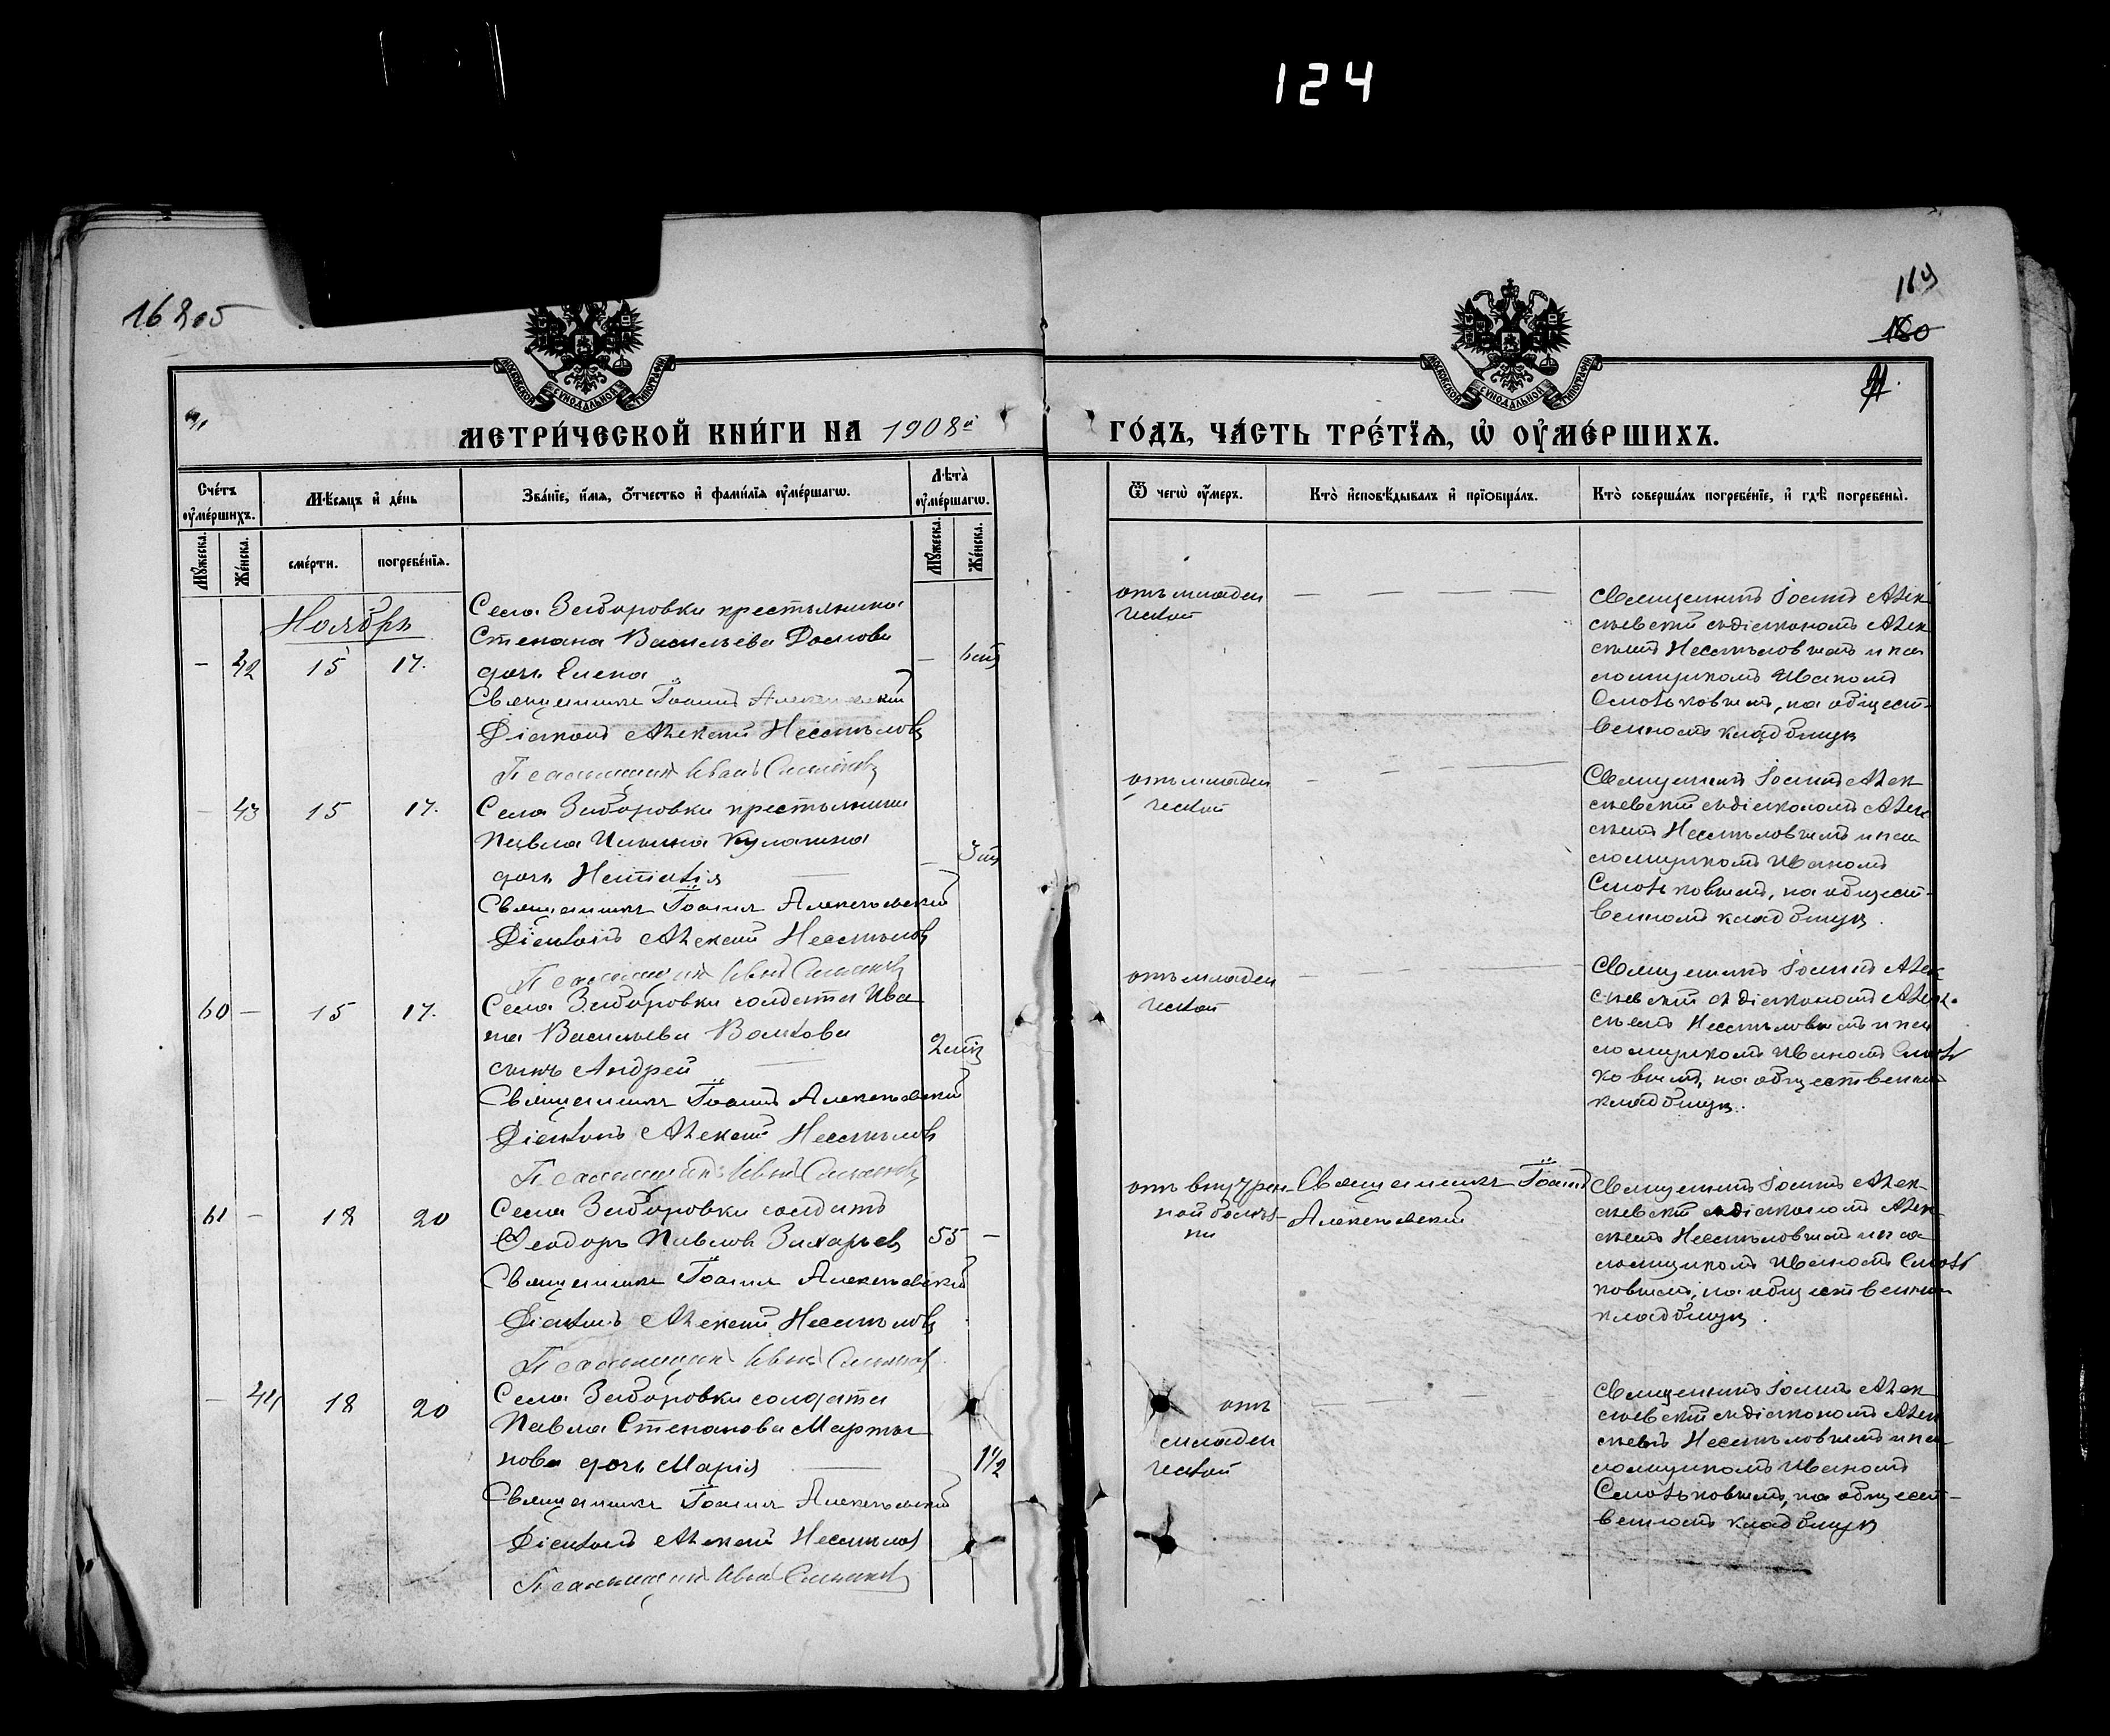 124
16205
119
180
МОСКОВСКОЙ СѴНОДАЛЬНОЙ ТИПОГРАФІИ
МОСКОВСКОЙ СѴНОДАЛЬНОЙ ТИПОГРАФІИ
МЕТРИ́ЧЕСКОЙ КНИ́ГИ НА 1908й
ГО́ДЪ, ЧА́СТЬ ТРЕ́ТЇѦ, Ѡ҆ ОУ҆МЕ́РШИХЪ.
Сче́тъ оу҆ме́ршихъ.
Мѣ́сяцъ и҆ де́нь
Зва́нїе, и҆́мѧ, ѻ҆́тчество и҆ фами́лїѧ оу҆ме́ршагѡ.
Лѣ́та̀ оу҆ме́ршагѡ.
Ѿ чегѡ̀ оу҆́меръ.
Кто̀ и҆сповѣ́дывалъ и҆ прїѡбща́лъ.
Кто̀ соверша́лъ погребе́нїе, и҆ гдѣ̀ погребены̀.
Мꙋ́жеска.
Же́нска.
сме́рти.
погребе́нїѧ.
Мꙋ́жеска.
Же́нска.
Ноябрь
Села Заборовки крестьянина
Степана Васильева
— 42 15 17. дочь Елена —
Священникъ Іоаннъ Алексѣевскій
Діаконъ Алексѣй Несмѣловъ
Псаломщикъ Иванъ
отъ младен
ческой
— — — —
Священникъ Іоаннъ Алек
сѣевскій съ діакономъ Алек
сѣемъ Несмѣловымъ и пса
ломщикомъ Иваномъ
на общест-
венномъ кладбищѣ
— 43 15 17. Села Заборовки крестьянина
Павла Ильина Кулагина
дочь —
Священникъ Іоаннъ Алексѣевскій
Діаконъ Алексѣй Несмѣловъ
Псаломщикъ Иванъ
отъ младен
ческой
— — — —
Священникъ Іоаннъ Алек
сѣевскій съ діакономъ Алек
сѣемъ Несмѣловымъ и пса
ломщикомъ Иваномъ
на общест-
венномъ кладбищѣ.
60 — 15 17. Села Заборовки солдата Ива
на Васильева Волкова
сынъ Андрей
Священникъ Іоаннъ Алексѣевскій
Діаконъ Алексѣй Несмѣловъ
Псаломщикъ Иванъ
отъ младен
ческой
Священникъ Іоаннъ Алек-
сѣевскій съ діакономъ Алек-
сѣемъ Несмѣловымъ и пса
ломщикомъ Иваномъ
ковымъ, на общественномъ
кладбищѣ.
61 — 18 20 Села Заборовки солдатъ
Ѳеодоръ Павловъ Захарьевъ 55 —
Священникъ Іоаннъ Алексѣевскій
Діаконъ Алексѣй Несмѣловъ
Псаломщикъ Иванъ
отъ внутрен-
ной болѣз-
ни
Священникъ Іоаннъ
Алексѣевскій
Священникъ Іоаннъ Алек-
сѣевскій съ діакономъ Алек-
сѣемъ Несмѣловымъ и пса
ломщикомъ Иваномъ
ковымъ, на общественномъ
кладбищѣ.
— 44 18 20 Села Заборовки солдата
Павла Степанова Марты
нова дочь Марія 1½
Священникъ Іоаннъ Алексѣевскій
Діаконъ Алексѣй Несмѣловъ
Псаломщикъ Иванъ
отъ
младен
ческой
Священникъ Іоаннъ Алек
сѣевскій съ діакономъ Алек
сѣемъ Несмѣловымъ и пса
ломщикомъ Иваномъ
на общест-
венномъ кладбищѣ